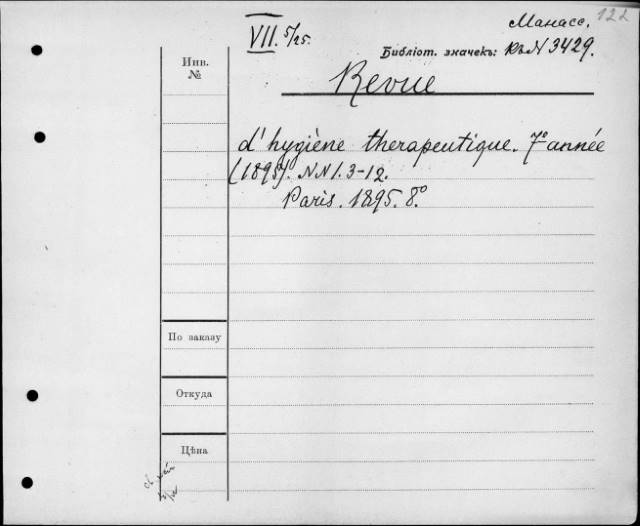 122
Манасс.
VII. 5/25.
Библіот. значекъ: КъN 3429.
Инв.
№
Revue
d'hygiène therapeutique. 7º année
(1895). NN 1. 3-12.
Paris. 1895. 8º
По заказу
Откуда
Цѣна